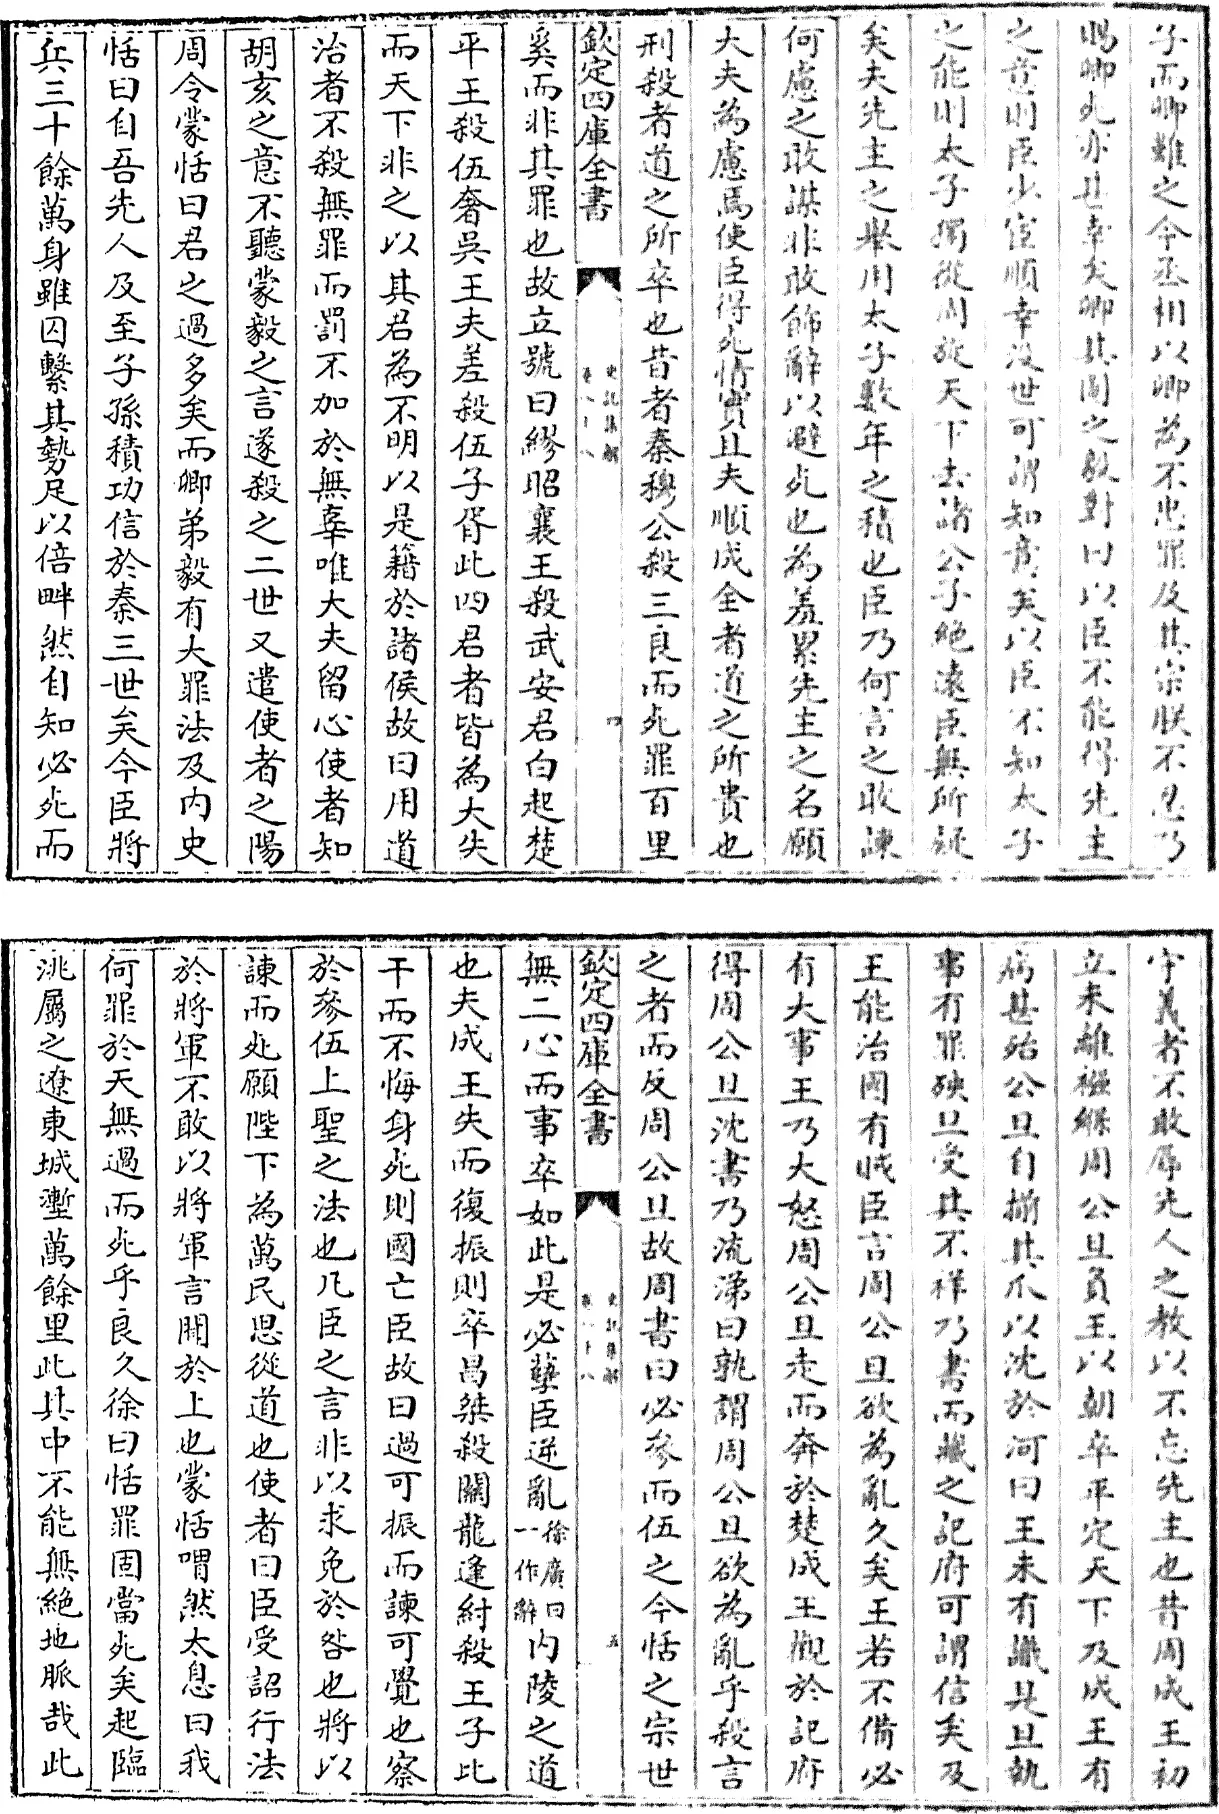 子而卿難之今丞相以卿為不忠罪及其宗朕不忍乃
賜卿死亦甚幸矣卿其圖之毅對曰以臣不能得先主
之意則臣少宦順幸沒世可謂知意矣以臣不知太子
之能則太子獨從周旋天下去諸公子絶遠臣無所疑
矣夫先主之舉用太子數年之積也臣乃何言之敢諫
何慮之敢謀非敢飾辭以避死也為羞累先主之名願
大夫為慮焉使臣得死情實且夫順成全者道之所貴也
刑殺者道之所卒也昔者秦穆公殺三良而死罪百里
欽定四庫全書 史記集解 卷八十八 四
奚而非其罪也故立號曰繆昭襄王殺武安君白起楚
平王殺伍奢吳王夫差殺伍子胥此四君者皆為大失
而天下非之以其君為不明以是籍於諸侯故曰用道
治者不殺無罪而罰不加於無辜唯大夫留心使者知
胡亥之意不聽蒙毅之言遂殺之二世又遣使者之陽
周令蒙恬曰君之過多矣而卿弟毅有大罪法及內史
恬曰自吾先人及至子孫積功信於秦三世矣今臣將
兵三十餘萬身雖囚繫其勢足以倍畔然自知必死而
守義者不敢辱先人之教以不忘先主也昔周成王初
立未離襁緥周公旦負王以朝卒平定天下及成王有
病甚殆公旦自揃其爪以沈於河曰王未有識是旦執
事有罪殃旦受其不祥乃書而藏之記府可謂信矣及
王能治國有賊臣言周公旦欲為亂久矣王若不備必
有大事王乃大怒周公旦走而奔於楚成王觀於記府
得周公旦沈書乃流涕曰孰謂周公旦欲為亂乎殺言
之者而反周公旦故周書曰必參而伍之今恬之宗世
欽定四庫全書 史記集解 卷八十八 五
無二心而事卒如此是必孽臣逆亂徐廣曰一作辭內陵之道
也夫成王失而復振則卒昌桀殺關龍逢紂殺王子比
干而不悔身死則國亡臣故曰過可振而諫可覺也察
於參伍上聖之法也凡臣之言非以求免於咎也將以
諫而死願陛下為萬民思從道也使者曰臣受詔行法
於將軍不敢以將軍言聞於上也蒙恬喟然太息曰我
何罪於天無過而死乎良久徐曰恬罪固當死矣起臨
洮屬之遼東城塹萬餘里此其中不能無絶地脈哉此